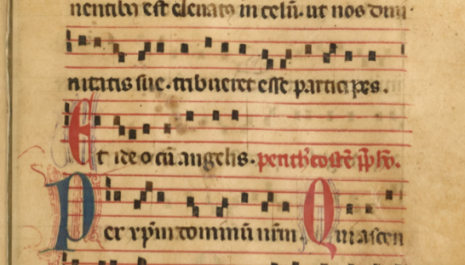 nentibꝯ est eleuatꝯ in celū. ut nos diui
nitatis sue. tribueret esse participes.
Et ideo cū angelis. penthecostē
Per xp̄m dominū nr̄m. Qui ascen